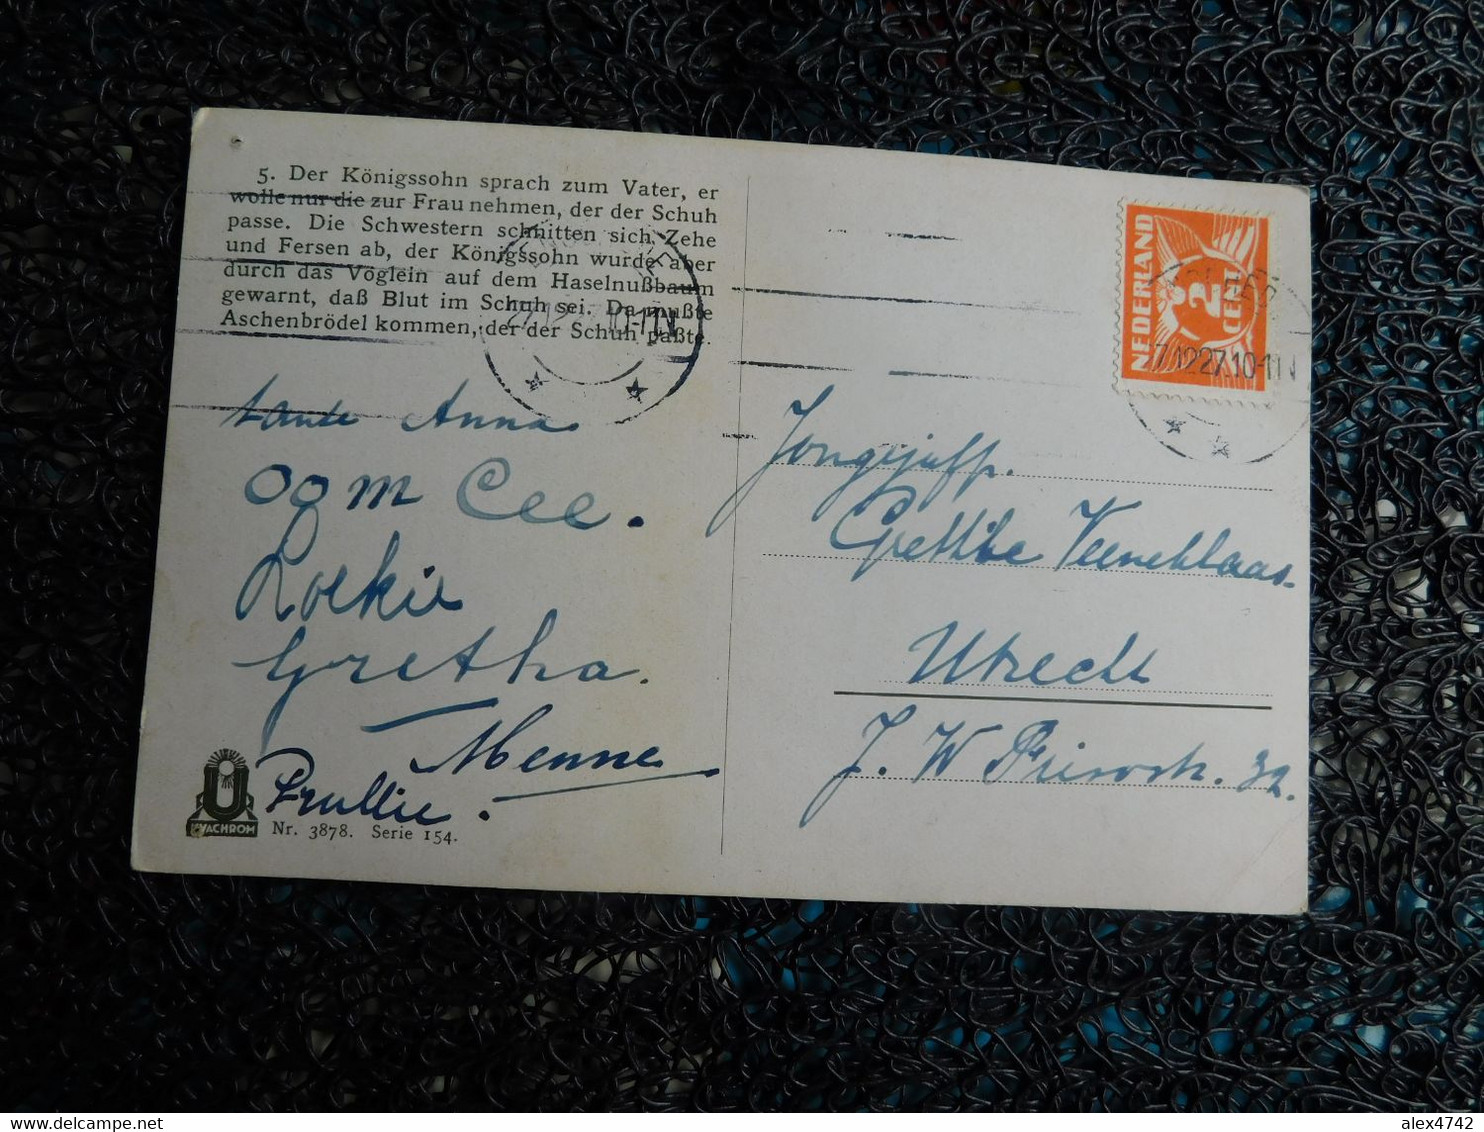 5. Der Königssohn sprach zum Vater, er
wolle nur die zur Frau nehmen, der der Schuh
passe. Die Schwestern schnitten sich Zehe
und Fersen ab, der Königssohn wurde aber
durch das Vöglein auf dem Haselnußbaum
gewarnt, daß Blut im Schuh sei. Da mußte
Aschenbrödel kommen, der der Schuh paßte.
tante Anna
oom Cee.
Loekie
Gretha.
Menne
Prullie.
UVACHROM
Nr. 3878. Serie 154.
NEDERLAND
2
CENT
7.12.27.10-11N
Jongejuffr.
Veeneklaas
Utrecht
32.
alex4742